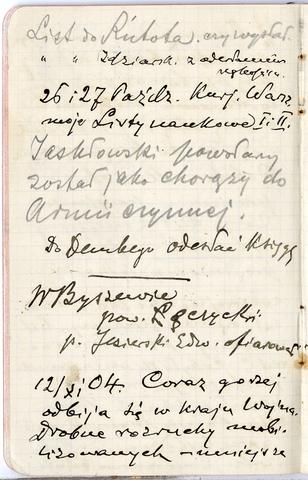 List do Rutota. czy wysłał.
" " Zdziarsk. z odesłaniem
rękopisu.
26 i 27 Paźdz. Kurj. Warsz.
moje Listy naukowe I i II.
Jaskłowski powołany
został jako chorąży do
Armii czynnej.
Do Dembego odesłać książę
W Byszewie
pow. Łęczycki.
p. Jezierski Edw. ofiarował
12/XI 04. Coraz gorzej
odbija się w kraju Wojna.
Drobne rozruchy mobi-
lizowanych - mniejsze